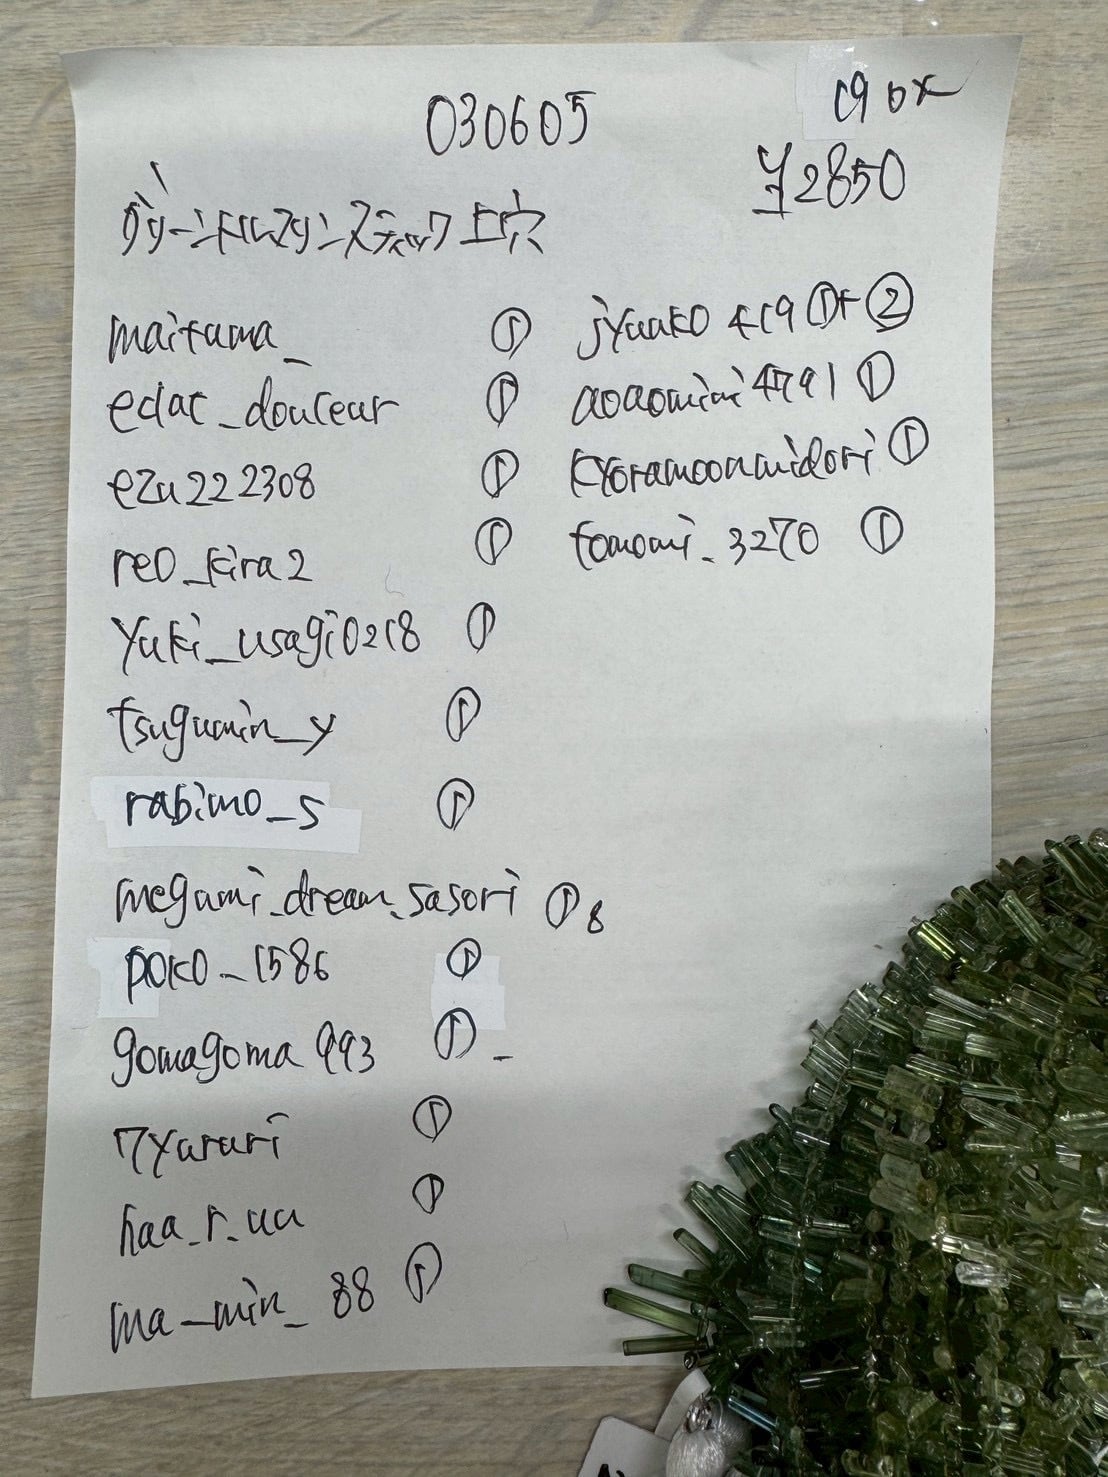 030605
19 ok
¥2850
グリーントルマリンスティック上穴
maitama_ ①
eclat_douceur ①
ezu222308 ①
reo_kira2 ①
yuki_usagi0218 ①
tsugumin_y ①
rabimo_s ①
megumi_dream_sasori ① 8
poko_1586 ①
gomagoma993 ① -
7yaruri ①
haa_r.uu ①
ma_min_88 ①
jyuako419 ①+②
aoaomimi4791 ①
kyoramoonmidori ①
tomomi_3270 ①